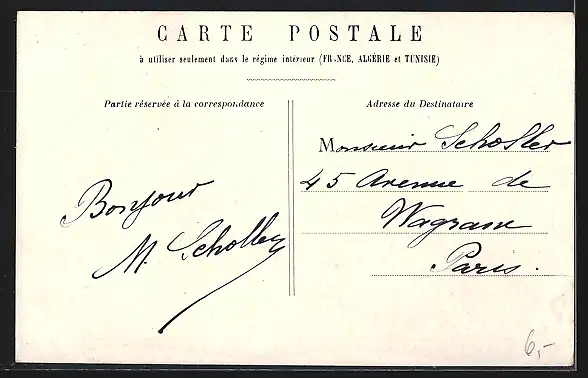 CARTE POSTALE
à utiliser seulement dans le régime intérieur (FRANCE, ALGÉRIE et TUNISIE)
Partie réservée à la correspondance
Adresse du Destinataire
Bonjour
M. Scholler
Monsieur Scholler
45 Avenue de
Wagram
Paris.
6,-